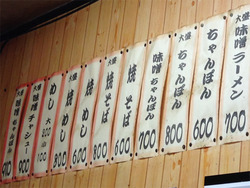 大盛
味噌ラーメン
700
ちゃんぽん
600
大盛
ちゃんぽん
700
味噌
ちゃんぽん
700
焼そば
600
大盛
焼そば
800
焼めし
600
大盛
焼めし
800
めし
大200
小100
味噌
チャシュー
900
大盛